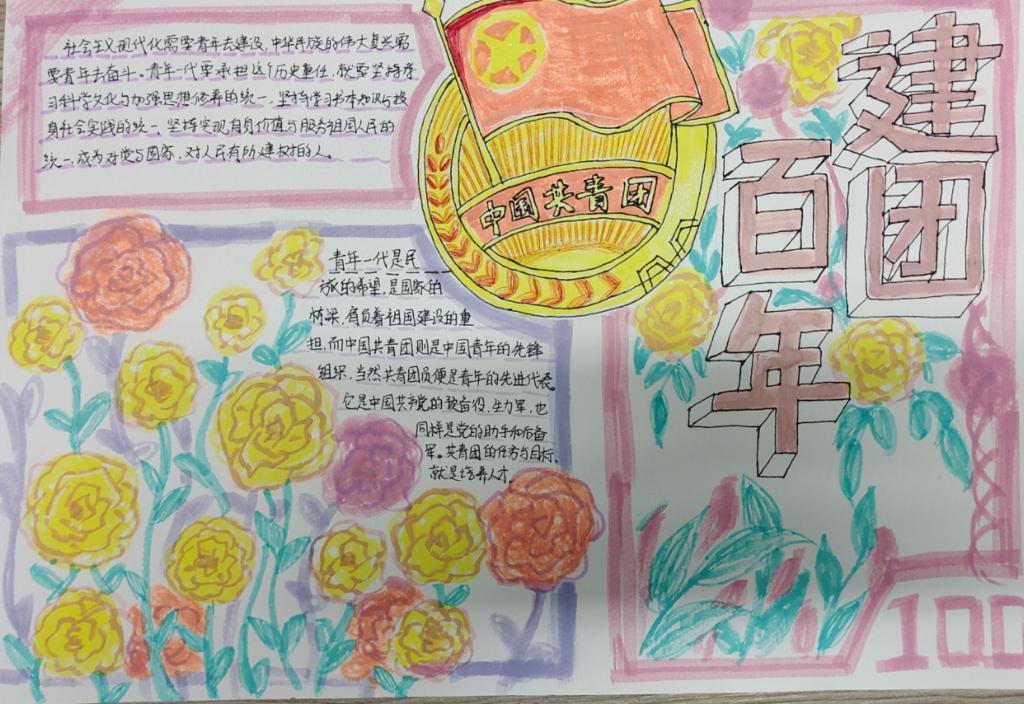 社会主义现代化需要青年去建设,中华民族的伟大复兴需
要青年去奋斗。青年一代要承担这个历史重任,就要坚持学
习科学文化与加强思想修养的统一,坚持学习书本知识与投
身社会实践的统一,坚持实现自身价值与服务祖国人民的
统一,成为对党与国家,对人民有所建树的人。
中国共青团
建团
百年
青年一代是民
族的希望,是国家的
桥梁,肩负着祖国建设的重
担,而中国共青团则是中国青年的先锋
组织,当然共青团员便是青年的先进代表。
它是中国共产党的预备役,生力军,也
同样是党的助手和后备
军。共青团的任务与目标,
就是培养人才。
100